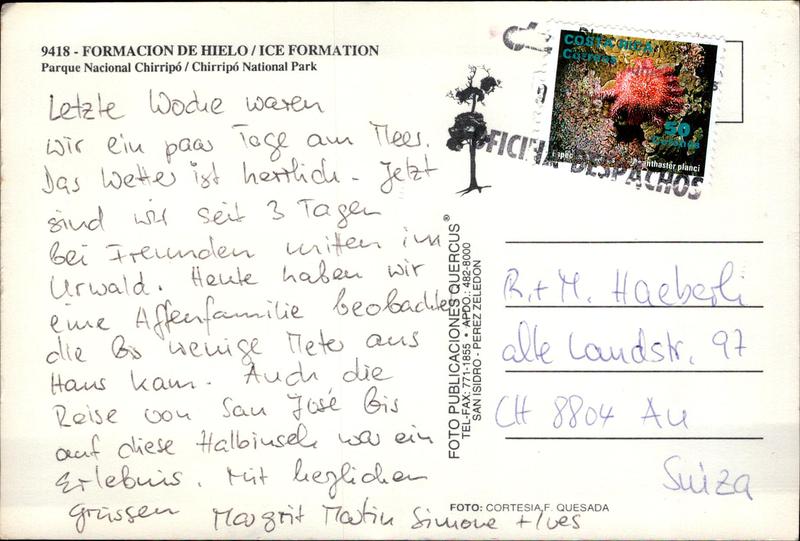 9418 - FORMACION DE HIELO / ICE FORMATION
Parque Nacional Chirripó / Chirripó National Park
Letzte Woche waren
wir ein paar Tage am Meer.
Das Wetter ist herrlich. Jetzt
sind wir seit 3 Tagen
bei Freunden mitten im
Urwald. Heute haben wir
eine Affenfamilie beobachtet
die bis wenige Meter ans
Haus kam. Auch die
Reise von San José bis
auf diese Halbinsel war ein
Erlebnis. Mit herzlichen
Grüssen Margrit Martin Simone + Yves
COSTA RICA
Correos
50
Colones
anthaster planci
OFICINA DESPACHOS
FOTO PUBLICACIONES QUERCUS®
TEL-FAX: 771-1855 • APDO.: 482-8000
SAN ISIDRO - PEREZ ZELEDON
R. + M. Haeberli
alte Landstr. 97
CH 8804 Au
Suiza
FOTO: CORTESIA F. QUESADA